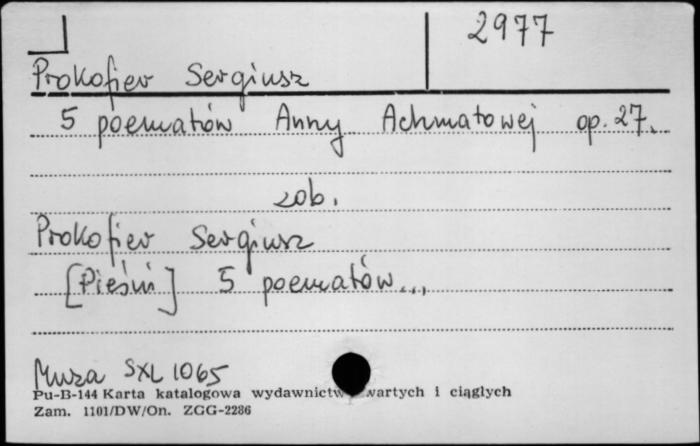 2977
Prokofiev Sergiusz
5 poematów Anny Achmatowej op. 27.
zob.
Prokofiev Sergiusz
[Pieśni] 5 poematów...
Muza SXL 1065
Pu-B-144 Karta katalogowa wydawnictw zwartych i ciągłych
Zam. 1101/DW/On. ZGG-2286